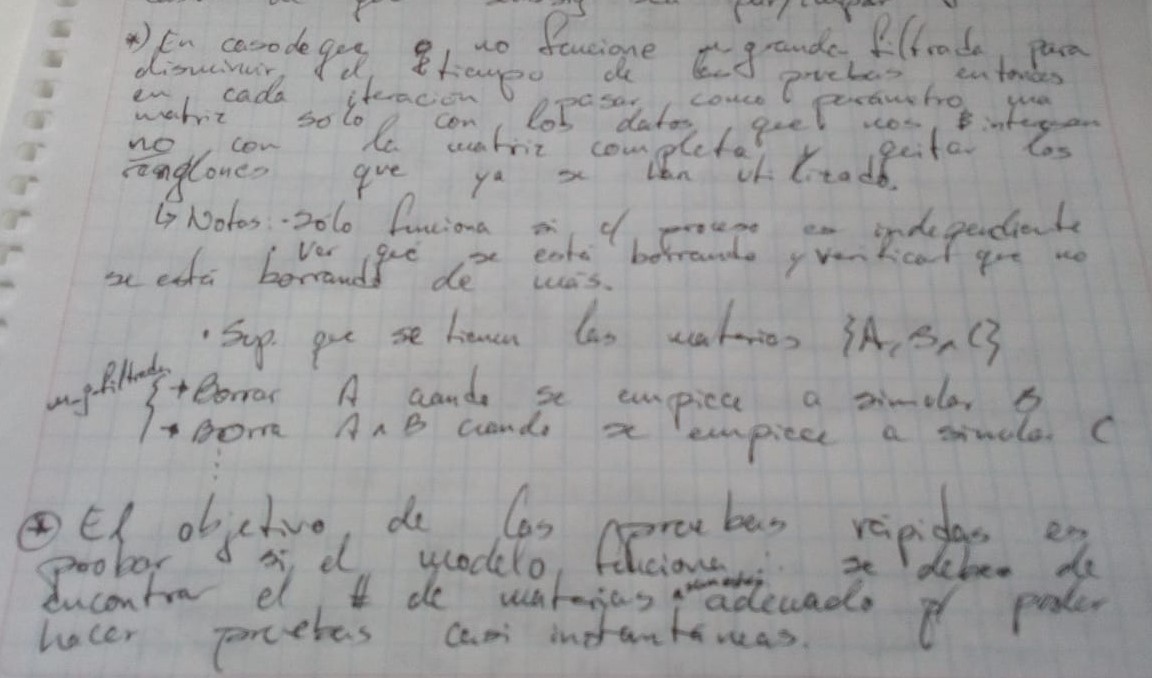 *) En caso de que no funcione m_grande_filtrada para
disminuir el tiempo de las pruebas entonces
en cada iteración pasar como parámetro una
matriz solo con los datos que nos interesan
no con la matriz completa y quitar los
renglones que ya se han utilizado.
↳ Notas: - Sólo funciona si c/ proceso es independiente
· Ver que se está borrando y verificar que no
se está borrando de más.
· Sup. que se tienen las materias {A, B, C}
m_g_filtrada
→ Borrar A cuando se empiece a simular B
→ Borra A ∧ B cuando se empiece a simular C
* El objetivo de las pruebas rápidas es
probar si el modelo funciona se debe de
encontrar el # de materias adecuado p/ poder
hacer pruebas casi instantáneas.